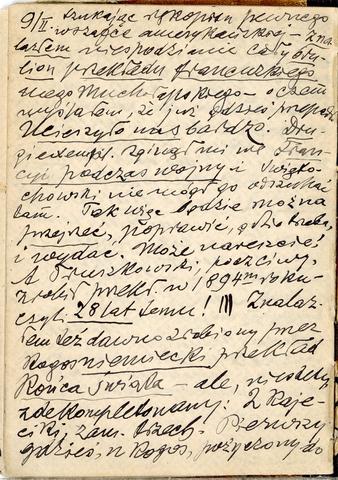 9/II szukając rękopisu pewnego
w szafce amerykańskiej – zna-
lazłem niespodzianie cały bru-
lion przekładu francuskiego
mego Muchołapskiego – o czem
myślałem, że już gdzieś przepadł
Ucieszyło nas bardzo. Dru-
gi exempl. zginął mi we Fran-
cyi podczas wojny i Święto-
chowski nie mógł go odszukać
tam. Tak więc będzie można
przejrzeć, poprawić, gdzie trzeba,
i wydać. Może nareszcie!
A Truszkowski, poczciwy,
zrobił przekł. w 1894m roku –
czyli 28 lat temu! !!! Znalaz-
łem też dawno zrobiony przez
kogoś niemiecki przekład
Końca świata – ale, niestety,
zdekompletowany: 2 kaje-
ciki zam. trzech. Pierwszy
gdzieś, u kogoś, pożyczony do